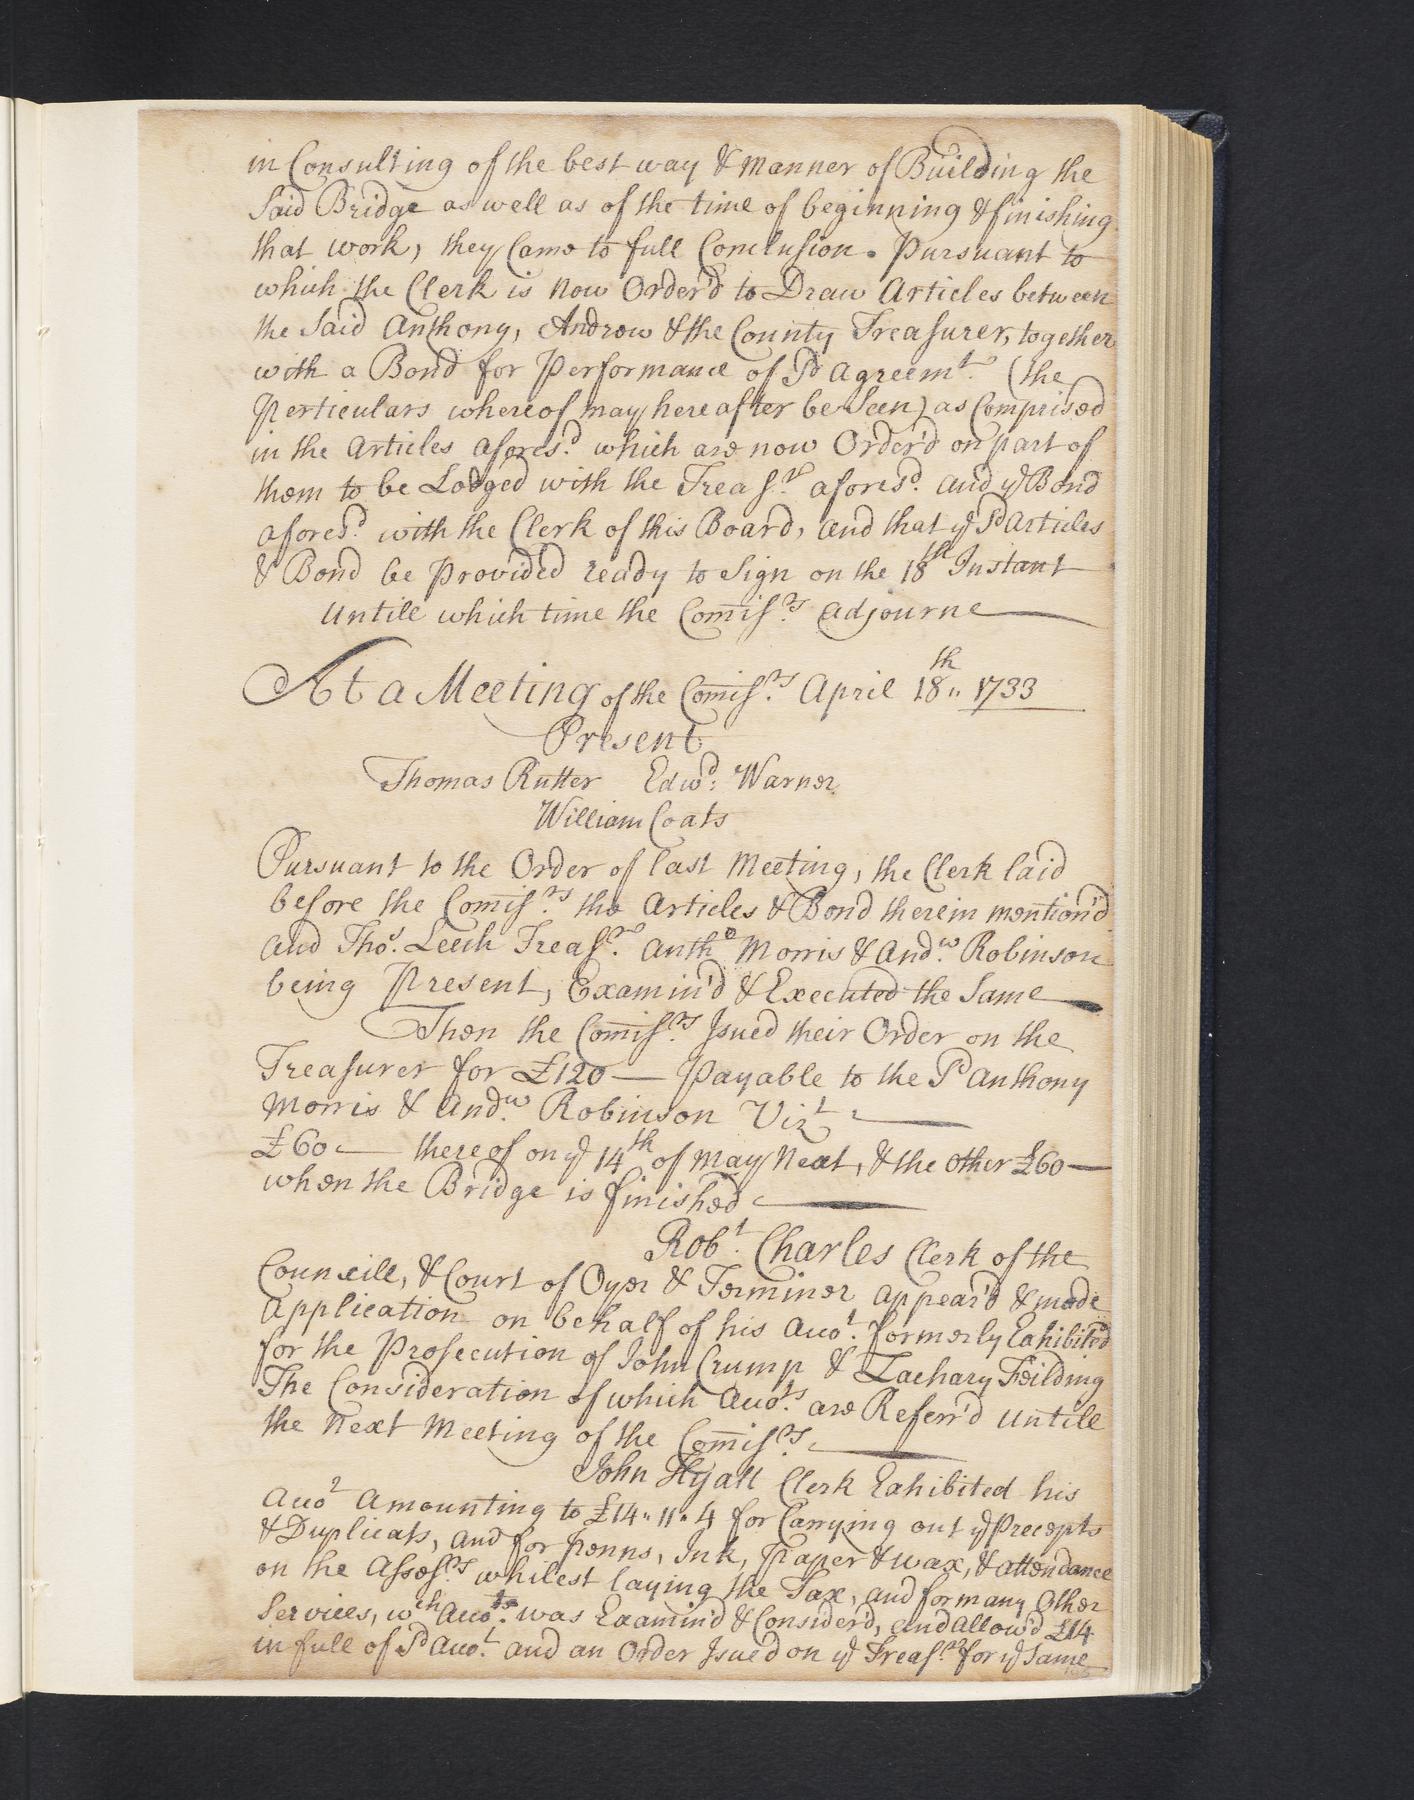 in Consulting of the best way & manner of Building the
Said Bridge as well as of the time of beginning & finishing
that work, they Came to full Conclusion. Pursuant to
which the Clerk is now Order'd to Draw Articles between
the Said Anthony, Andrew & the County Treasurer, together
with a Bond for Performance of Sd Agreemt. (the
Perticulars whereof may hereafter be Seen) as Comprised
in the Articles aforesd. which are now Order'd on part of
them to be Lodged with the Treasr. aforesd. and ye Bond
aforesd. with the Clerk of this Board, and that ye Sd Articles
& Bond be Provided ready to Sign on the 18th Instant
Untill which time the Comisrs. adjourne
At a Meeting of the Comisrs. April 18th 1733
Present
Thomas Rutter Edwd: Warner
William Coats
Pursuant to the Order of last Meeting, the Clerk laid
before the Comisrs. the Articles & Bond therein mention'd
and Thos. Leech Treasr. Antho Morris & Andw. Robinson
being Present, Examin'd & Executed the Same
Then the Comisrs. Isued their Order on the
Treasurer for £120 — Payable to the Sd Anthony
Morris & Andw. Robinson Vizt
£60 — thereof on ye 14th of May Next, & the other £60 —
when the Bridge is finished
Robt. Charles Clerk of the
Councill, & Court of Oyer & Terminer appear'd & made
Application on behalf of his Accot. formerly Exhibited
for the Prosecution of John Crump & Zachary Feilding
The Consideration of which Accots. are Referr'd untill
the Next Meeting of the Comisrs.
John Hyatt Clerk Exhibited his
Accot Amounting to £14 " 11 " 4 for Carrying out ye Precepts
& Duplicats, and for Penns, Ink, Paper & wax, & attendance
on the Assesrs. whilest laying the Tax, and for many Other
Services, wch Accot. was Examin'd & Consider'd, and allow'd £14
in full of Sd Accot. and an Order Isued on ye Treasr for ye Same